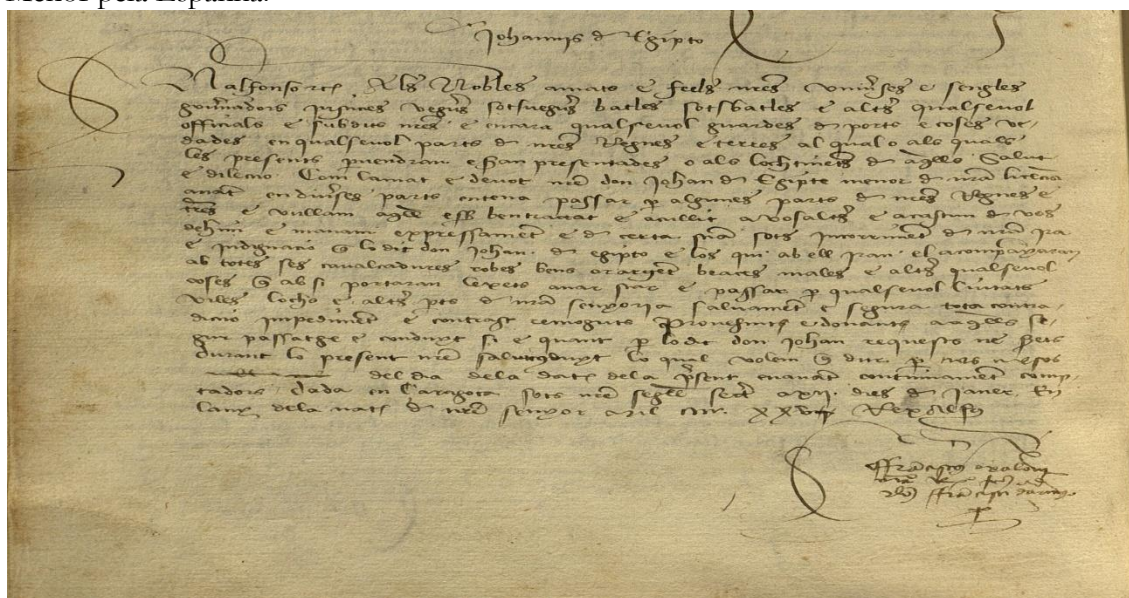 Menor pela Espanha.
Johannis d Egipto
N alfonso etc Als Nobles amats e feels nres universes e sengles
governadors justicies veguers sotsveguers batles sotsbatles e altres qualsevol
officials e subdits nres e encara qualsevol guardes de ports e coses ve-
dades en qualsevol parts de nres Regnes e terres al qual o als quals
les presents pervendran e seran presentades o als lochtinents d aquells Salut
e dileccio Com lamat e devot nre don Johan de Egipte menor de nra licencia
anant en diverses parts entena passar per algunes parts de nres Regnes e
terres e vullam aquell esser ben tractat e acullit a vosaltres e a cascun de vos
dehim e manam expressament e de certa sciencia sots incorriment de nra ira
e indignacio que lo dit don Johan de egipto e los qui ab ell iran el acompanyaran
ab totes ses cavalcadures robes bens or argent beaces males e altres qualsevol
coses que ab si portaran lexets anar star e passar per qualsevol Ciutats
viles lochs e altres parts de nra senyoria salvament e segura tota contra-
diccio impediment e contrast remoguts Provehints e donants a aquells se-
gur passatge e conduyt si e quant per lo dit don Johan requests ne serets
durant lo present nre salconduyt lo qual volem que dure per tres mesos
del dia dela data dela present enavant continuament comp-
tadors Dada en Caragoça sots nre segell secret a xij dies de Janer En
lany dela nativitat de nre senyor Mil CCCC XXV Rex Alfonsus